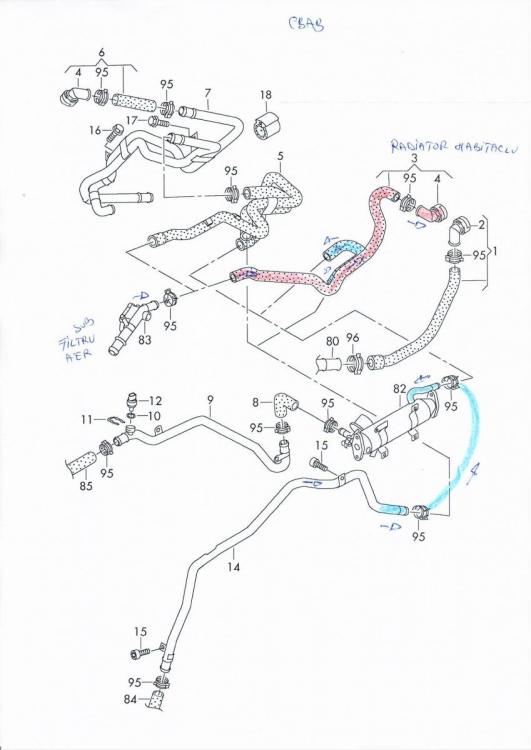 CBAB
6
4 95 95 7
18
17
16
RADIATOR HABITACLU
3
95 4
95 5
2
1
95
83
95
SUB
FILTRU
AER
80 96
82
12
11 10
9
8
95
95
95
15
85 95
95
14
15
95
84